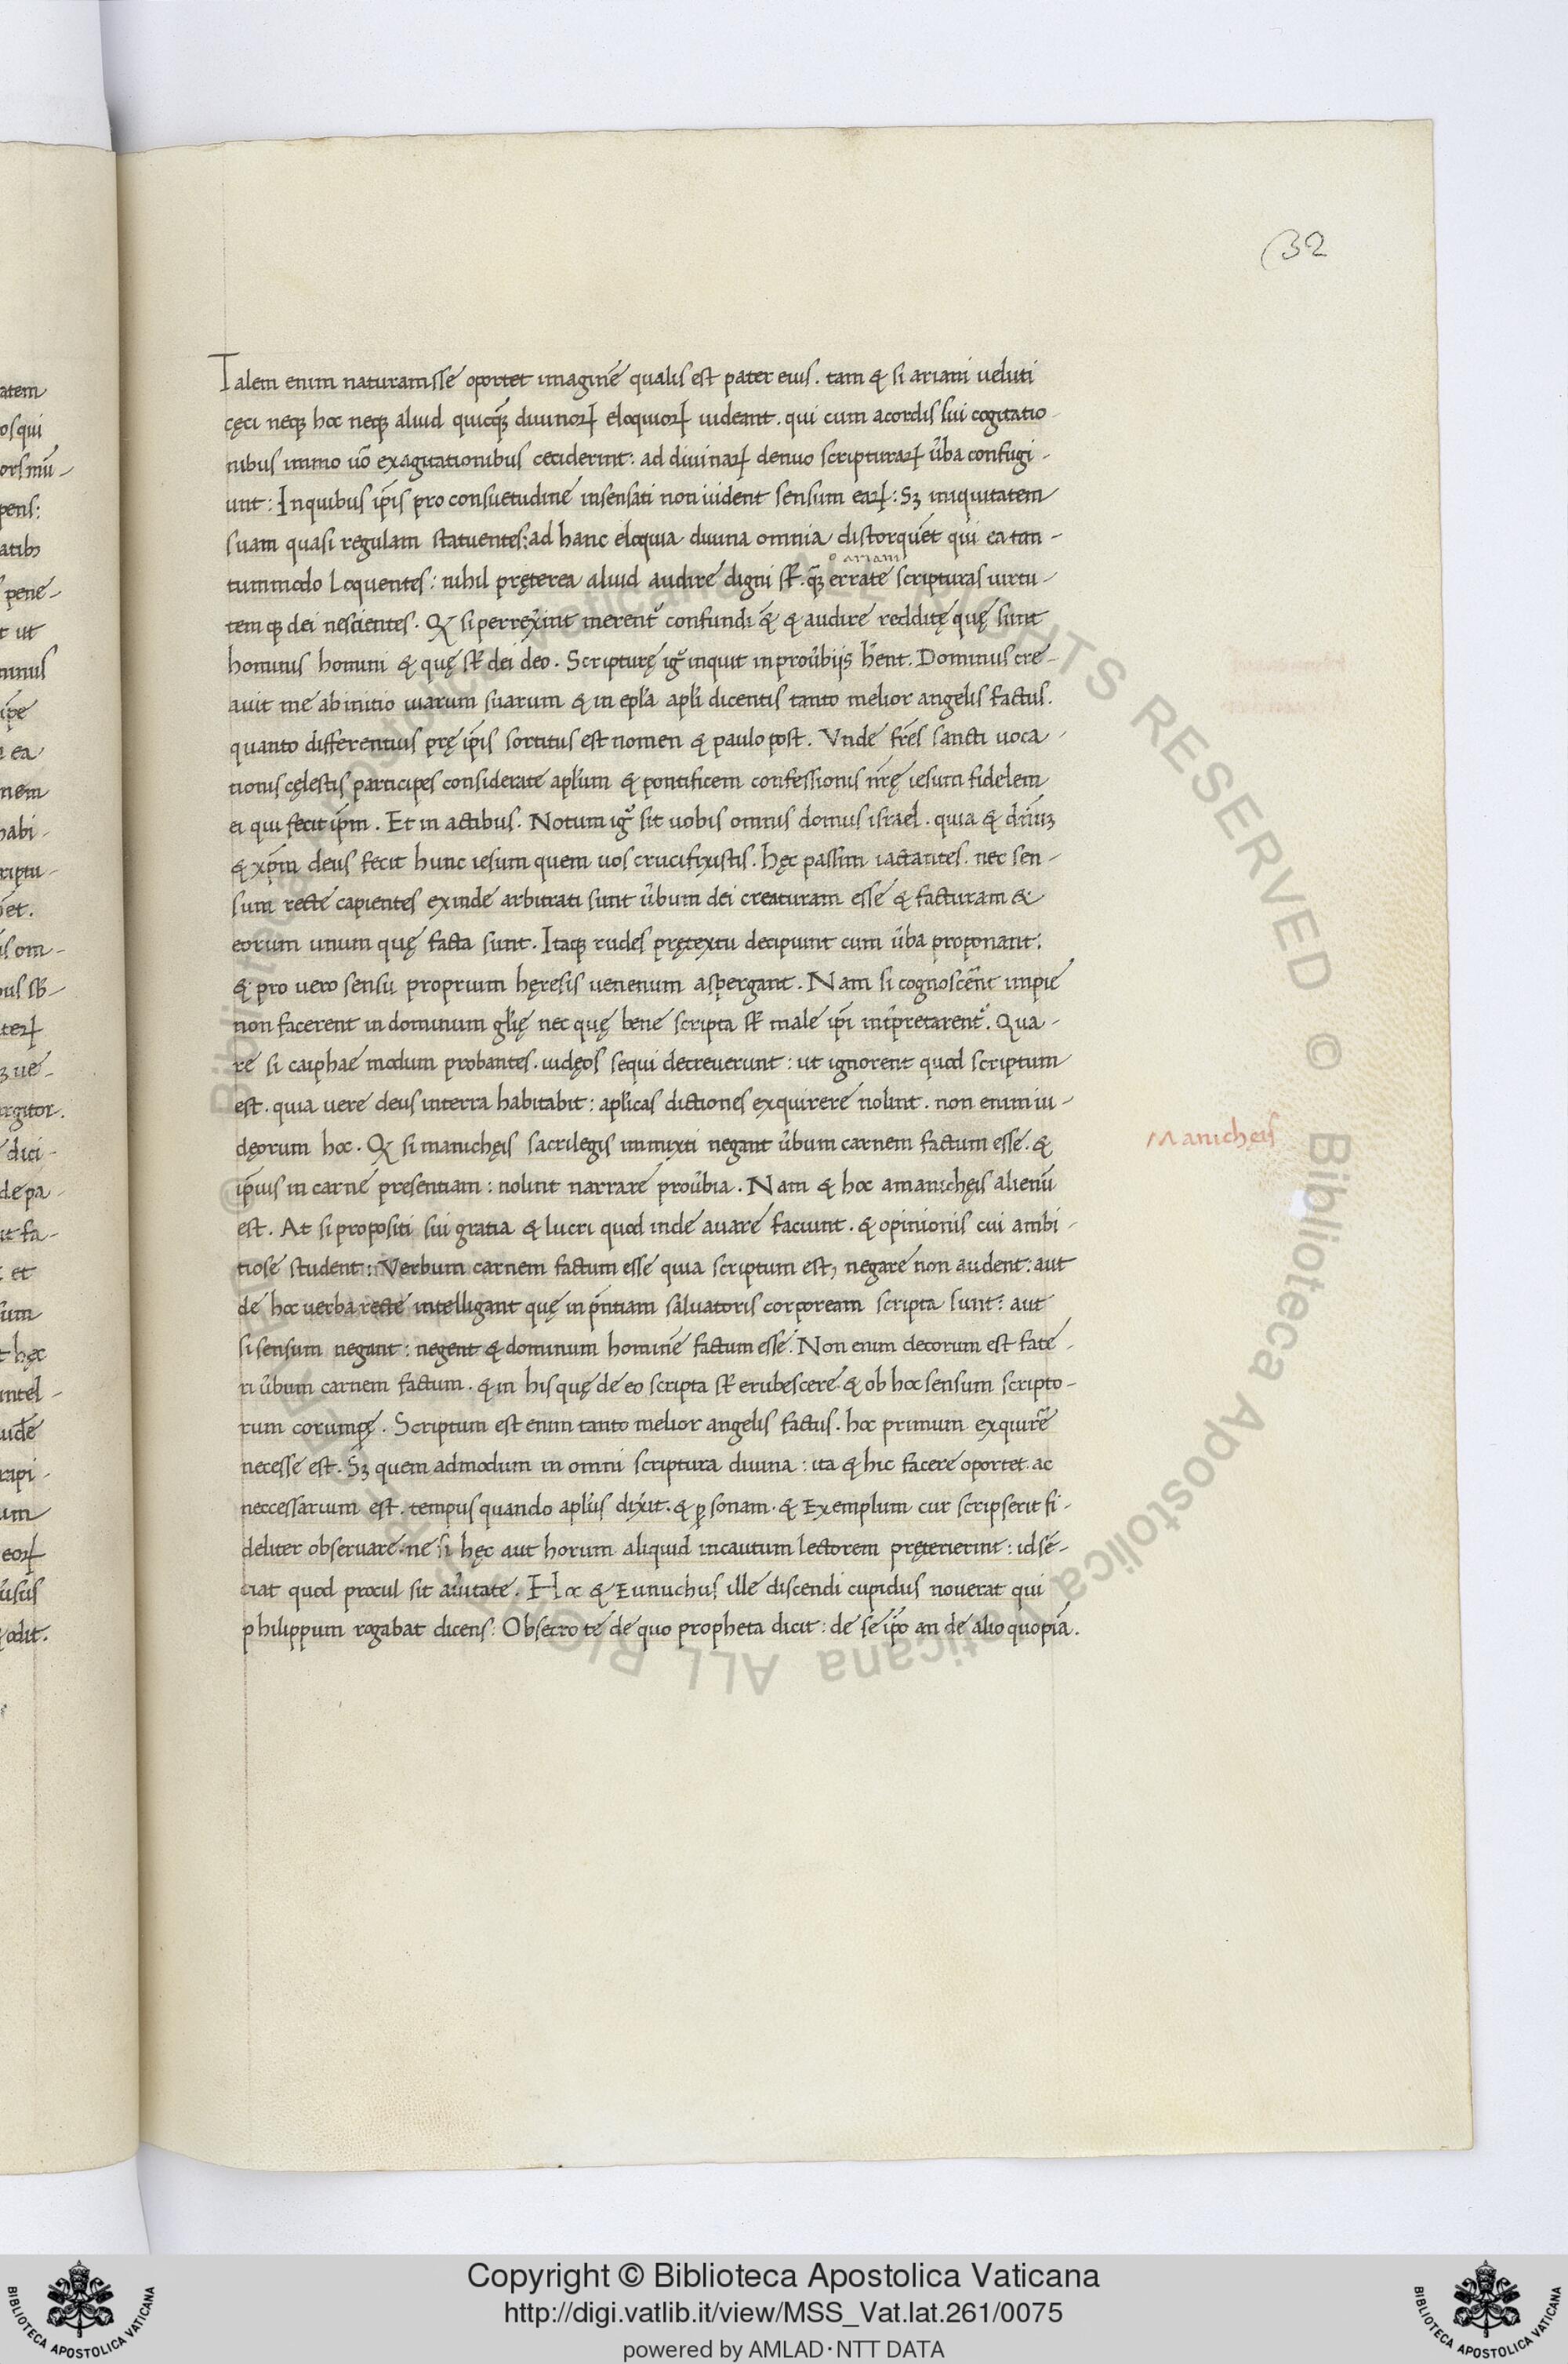 32
Talem enim naturam ẽe oportet imaginẽ qualis est pater eius. tam & si ariani ueluti
cęci neqꝫ hoc neqꝫ aliud quicq̃ꝫ diuinoꝝ eloquioꝝ uideant. qui cum acordis sui cogitatio-
nibus immo uõ exagitationibus ceciderint: ad diuinaꝝ denuo scripturaꝝ ũba confugi-
unt: In quibus ip̃is pro consuetudine insensati non uident sensum eaꝝ: Sꝫ iniquitatem
suam quasi regulam statuentes: ad hanc eloquia diuina omnia distorquẽt qui ea tan-
o ariani
tummodo Loquentes: nihil pręterea aliud audire digni sť. q̃ꝫ errate scripturas uirtu-
temqꝫ dei nescientes. Q&si perrex̃int merent᷑ confundi q̃ & audire redditę quę sunt
hominis homini & quę sť dei deo. Scripturę ig᷑ inquit in prouẽbijs hñt. Dominus cre-
auit me ab initio uiarum suarum & in epĺa apĺi dicentis tanto melior angelis factus.
quanto differentius prę ip̃is sortitus est nomen & paulo post. Vnde fr̃es sancti uoca-
tionis cęlestis participes considerate apĺum & pontificem confessionis nr̃ę iesum fidelem
ei qui fecit ip̃m. Et in actibus. Notum ig᷑ sit uobis omnis domus israel. quia & dñuꝫ
& xp̃m deus fecit hunc iesum quem uos crucifixistis. hęc passim iactantes. nec sen-
sum recte capientes exinde arbitrati sunt ũbum dei creaturam esse & facturam &
eorum unum quę facta sunt. Itaqꝫ rudes pretextu decipiunt cum ũba proponant:
& pro uero sensu proprium hęresis uenenum aspergant. Nam si cognoscẽnt impie
non facerent in dominum gĺię nec quę bene scripta sť male ip̃i int̃pretarent᷑. Qua-
re si caiphae modum probantes. iudęos sequi decreuerunt: ut ignorent quod scriptum
est. quia uere deus in terra habitabit: apĺicas dictiones exquirere nolint. non enim iu-
dęorum hoc. Q& si manichęis sacrilegis immixti negant ũbum carnem factum esse. &
ip̃ius in carne presentiam: nolint narrare proũbia. Nam & hoc a manichęis alienũ
est. At si propositi sui gratia & lucri quod inde auare faciunt. & opinionis cui ambi-
tiose student: Verbum carnem factum esse quia scriptum est, negare non audent: aut
de hoc uerba recte intelligant quę in pñtiam saluatoris corpoream scripta sunt: aut
si sensum negant: negent & dominum hominẽ factum esse. Non enim decorum est fate-
ri ũbum carnem factum. & in his quę de eo scripta sť erubescere. & ob hoc sensum scripto-
rum corumpe. Scriptum est enim tanto melior angelis factus. hoc primum exquirẽ
necesse est. Sꝫ quem admodum in omni scriptura diuina: ita & hic facere oportet. ac
neccessarium est. tempus quando apĺus dixit. & ꝑsonam. & Exemplum cur scripserit fi-
deliter obseruare. ne si hęc aut horum aliquid incautum lectorem pręterierint: id se-
ciat quod procul sit a ũitate. Hoc & Eunuchus ille discendi cupidus nouerat qui
philippum rogabat dicens: Obsecro te de quo propheta dicit: de se ip̃o an de alio quopiã.
Manicheis
Copyright © Biblioteca Apostolica Vaticana
http://digi.vatlib.it/view/MSS_Vat.lat.261/0075
powered by AMLAD·NTT DATA